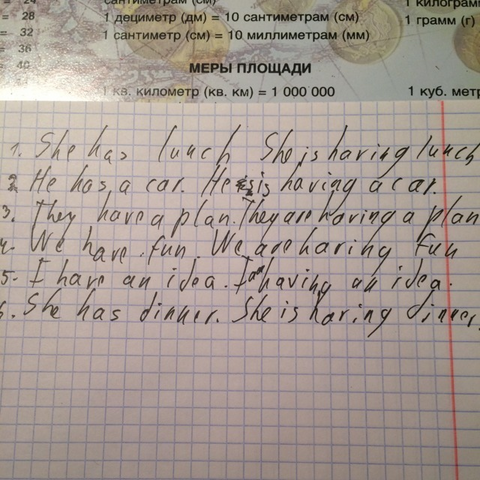 = 24
сантиметрам (см)
1 килограмм
= 28
1 дециметр (дм) = 10 сантиметрам (см)
1 грамм (г)
= 32
1 сантиметр (см) = 10 миллиметрам (мм)
= 36
= 40
МЕРЫ ПЛОЩАДИ
1 кв. километр (кв. км) = 1 000 000
1 куб. метр
1. She has lunch She is having lunch
2. He has a car. He is having a car.
3. They have a plan. They are having a plan
4. We have fun. We are having fun
5. I have an idea. I am having an idea.
6. She has dinner. She is having dinner.